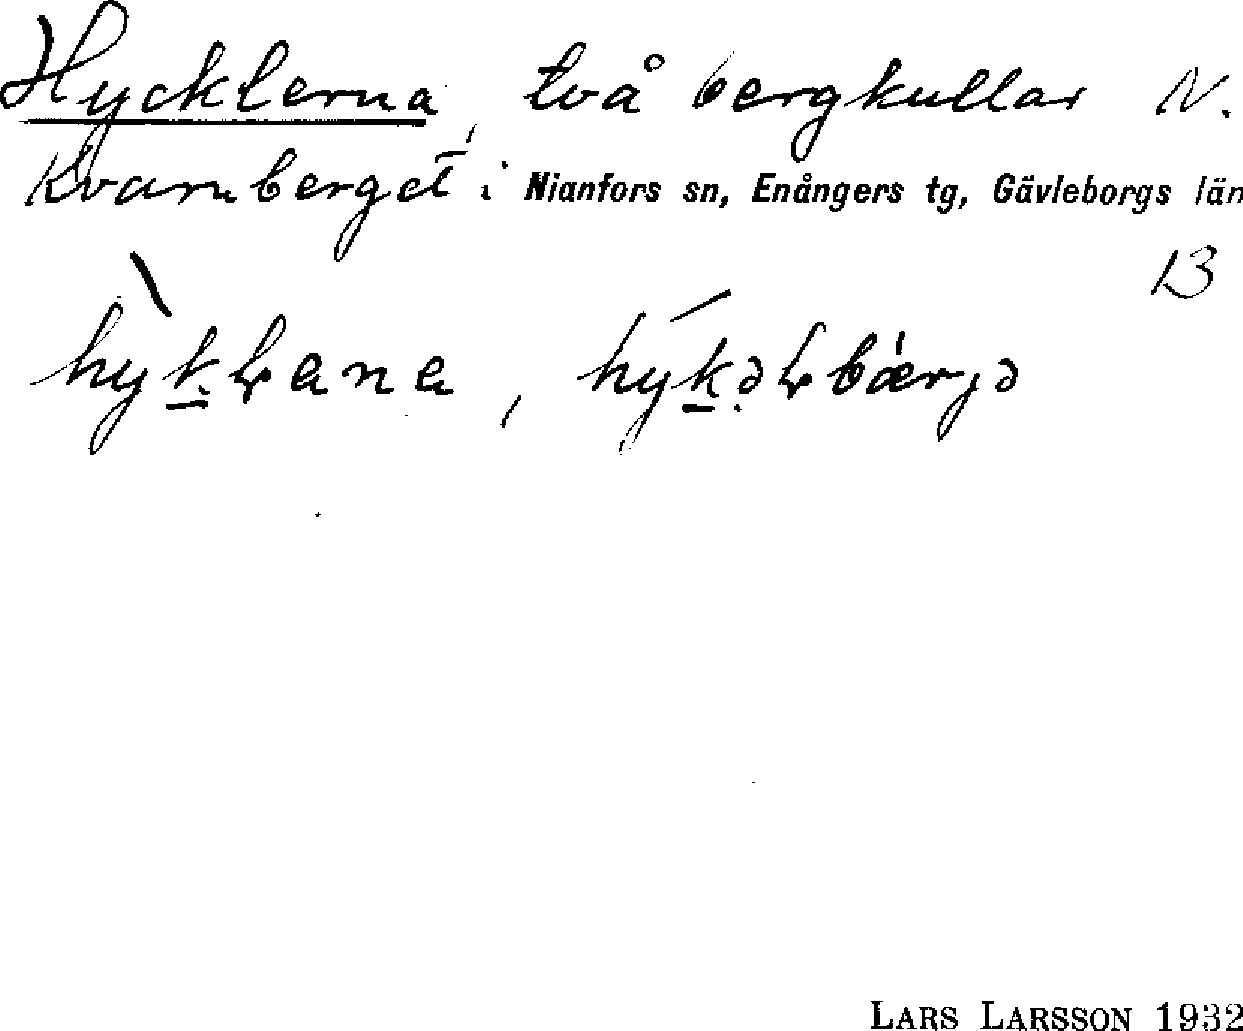 Hycklerna, två bergkullar N.
Kvarnberget i Nianfors sn, Enångers tg, Gävleborgs län
13
hỳk̠ɽana, hýk̠əɽbærjə
LARS LARSSON 1932